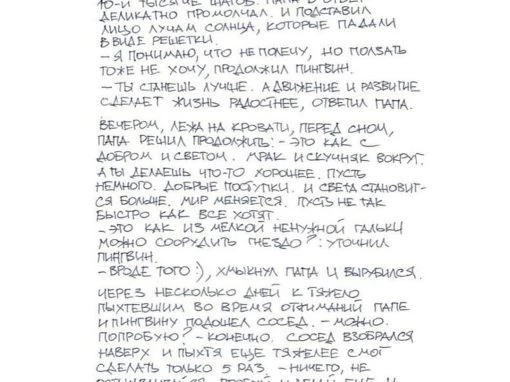 10-И ТЫСЯЧЕ ШАГОВ. ПАПА В ОТВЕТ
ДЕЛИКАТНО ПРОМОЛЧАЛ. И ПОДСТАВИЛ
ЛИЦО ЛУЧАМ СОЛНЦА, КОТОРЫЕ ПАДАЛИ
В ВИДЕ РЕШЕТКИ.
- Я ПОНИМАЮ, ЧТО НЕ ПОЛЕЧУ, НО ПОЛЗАТЬ
ТОЖЕ НЕ ХОЧУ, ПРОДОЛЖИЛ ПИНГВИН.
- ТЫ СТАНЕШЬ ЛУЧШЕ. А ДВИЖЕНИЕ И РАЗВИТИЕ
СДЕЛАЕТ ЖИЗНЬ РАДОСТНЕЕ, ОТВЕТИЛ ПАПА.
ВЕЧЕРОМ, ЛЕЖА НА КРОВАТИ, ПЕРЕД СНОМ,
ПАПА РЕШИЛ ПРОДОЛЖИТЬ: - ЭТО КАК С
ДОБРОМ И СВЕТОМ. МРАК И СКУЧНЯК ВОКРУГ.
А ТЫ ДЕЛАЕШЬ ЧТО-ТО ХОРОШЕЕ. ПУСТЬ
НЕМНОГО. ДОБРЫЕ ПОСТУПКИ. И СВЕТА СТАНОВИТ-
СЯ БОЛЬШЕ. МИР МЕНЯЕТСЯ. ПУСТЬ НЕ ТАК
БЫСТРО КАК ВСЕ ХОТЯТ.
- ЭТО КАК ИЗ МЕЛКОЙ НЕНУЖНОЙ ГАЛЬКИ
МОЖНО СООРУДИТЬ ГНЕЗДО?: УТОЧНИЛ
ПИНГВИН.
- ВРОДЕ ТОГО :), ХМЫКНУЛ ПАПА И ВЫРУБИЛСЯ.
ЧЕРЕЗ НЕСКОЛЬКО ДНЕЙ К ТЯЖЕЛО
ПЫХТЕВШИМ ВО ВРЕМЯ ОТЖИМАНИЙ ПАПЕ
И ПИНГВИНУ ПОДОШЕЛ СОСЕД. - МОЖНО.
ПОПРОБУЮ? - КОНЕЧНО. СОСЕД ВЗОБРАЛСЯ
НАВЕРХ И ПЫХТЯ ЕЩЕ ТЯЖЕЛЕЕ СМОГ
СДЕЛАТЬ ТОЛЬКО 5 РАЗ. - НИЧЕГО, НЕ